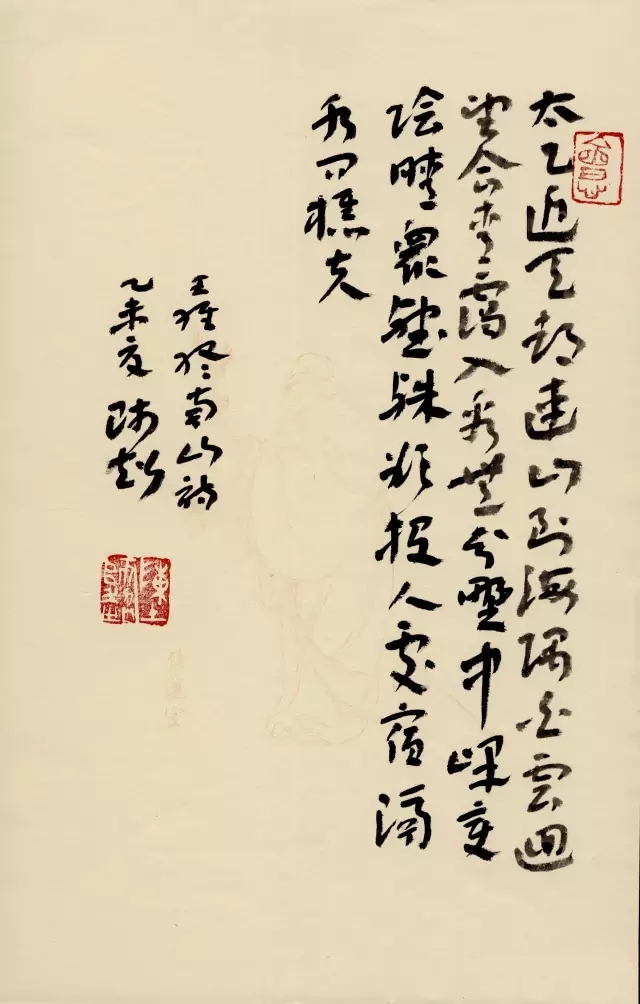 太乙近天都連山到海隅白雲迴
望合青靄入看無分野中峰變
陰晴眾壑殊欲投人處宿隔
水問樵夫
王維終南山詩
乙未夏